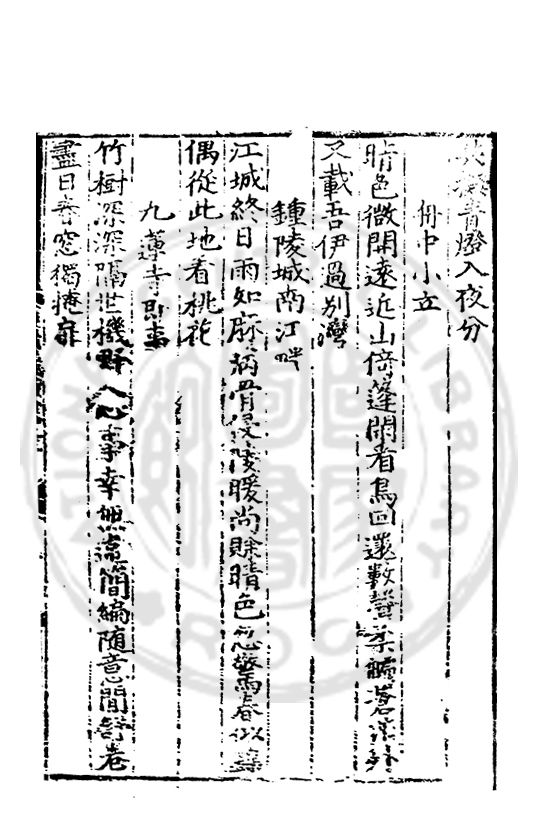 青燈入夜分
舟中小立
晴色微開遠近山倚篷閒看鳥回還數聲柔艫蒼茫外
又載吾伊過別灣
鍾陵城南江畔
江城終日雨如麻病骨侵凌暖尚賖晴色忽驚春似
偶從此地看桃花
九蓮寺即事
竹樹深深隔世機野人心事幸無違簡編随意閒舒卷
盡日春窓獨掩扉